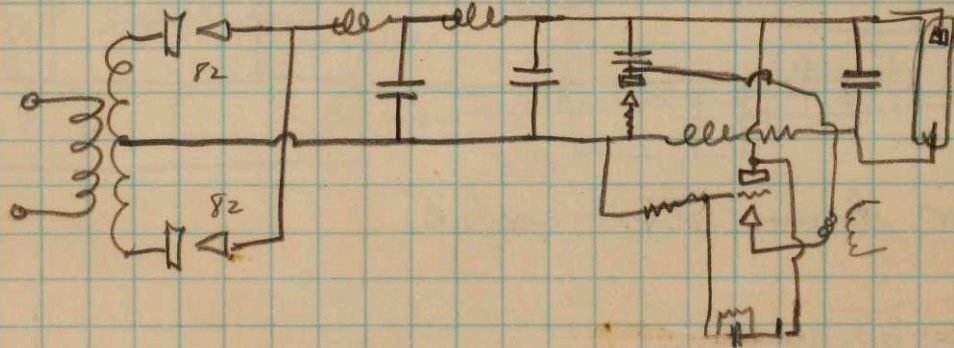 82
82